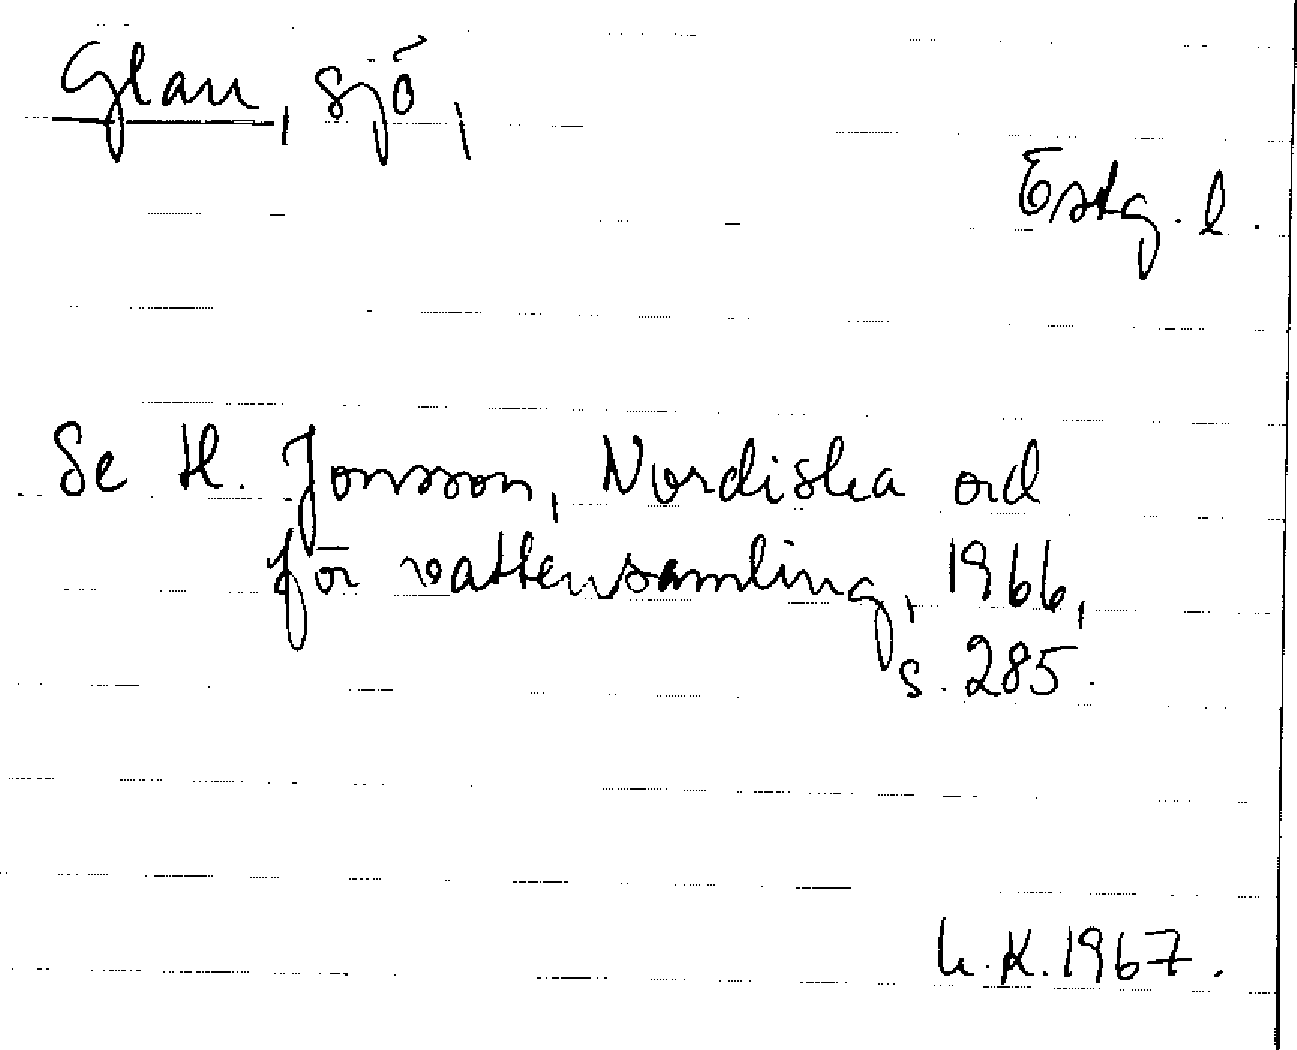 Glan, sjö,
Östg. l.
Se H. Jonsson, Nordiska ord
för vattensamling, 1966,
s. 285.
K. 1967.